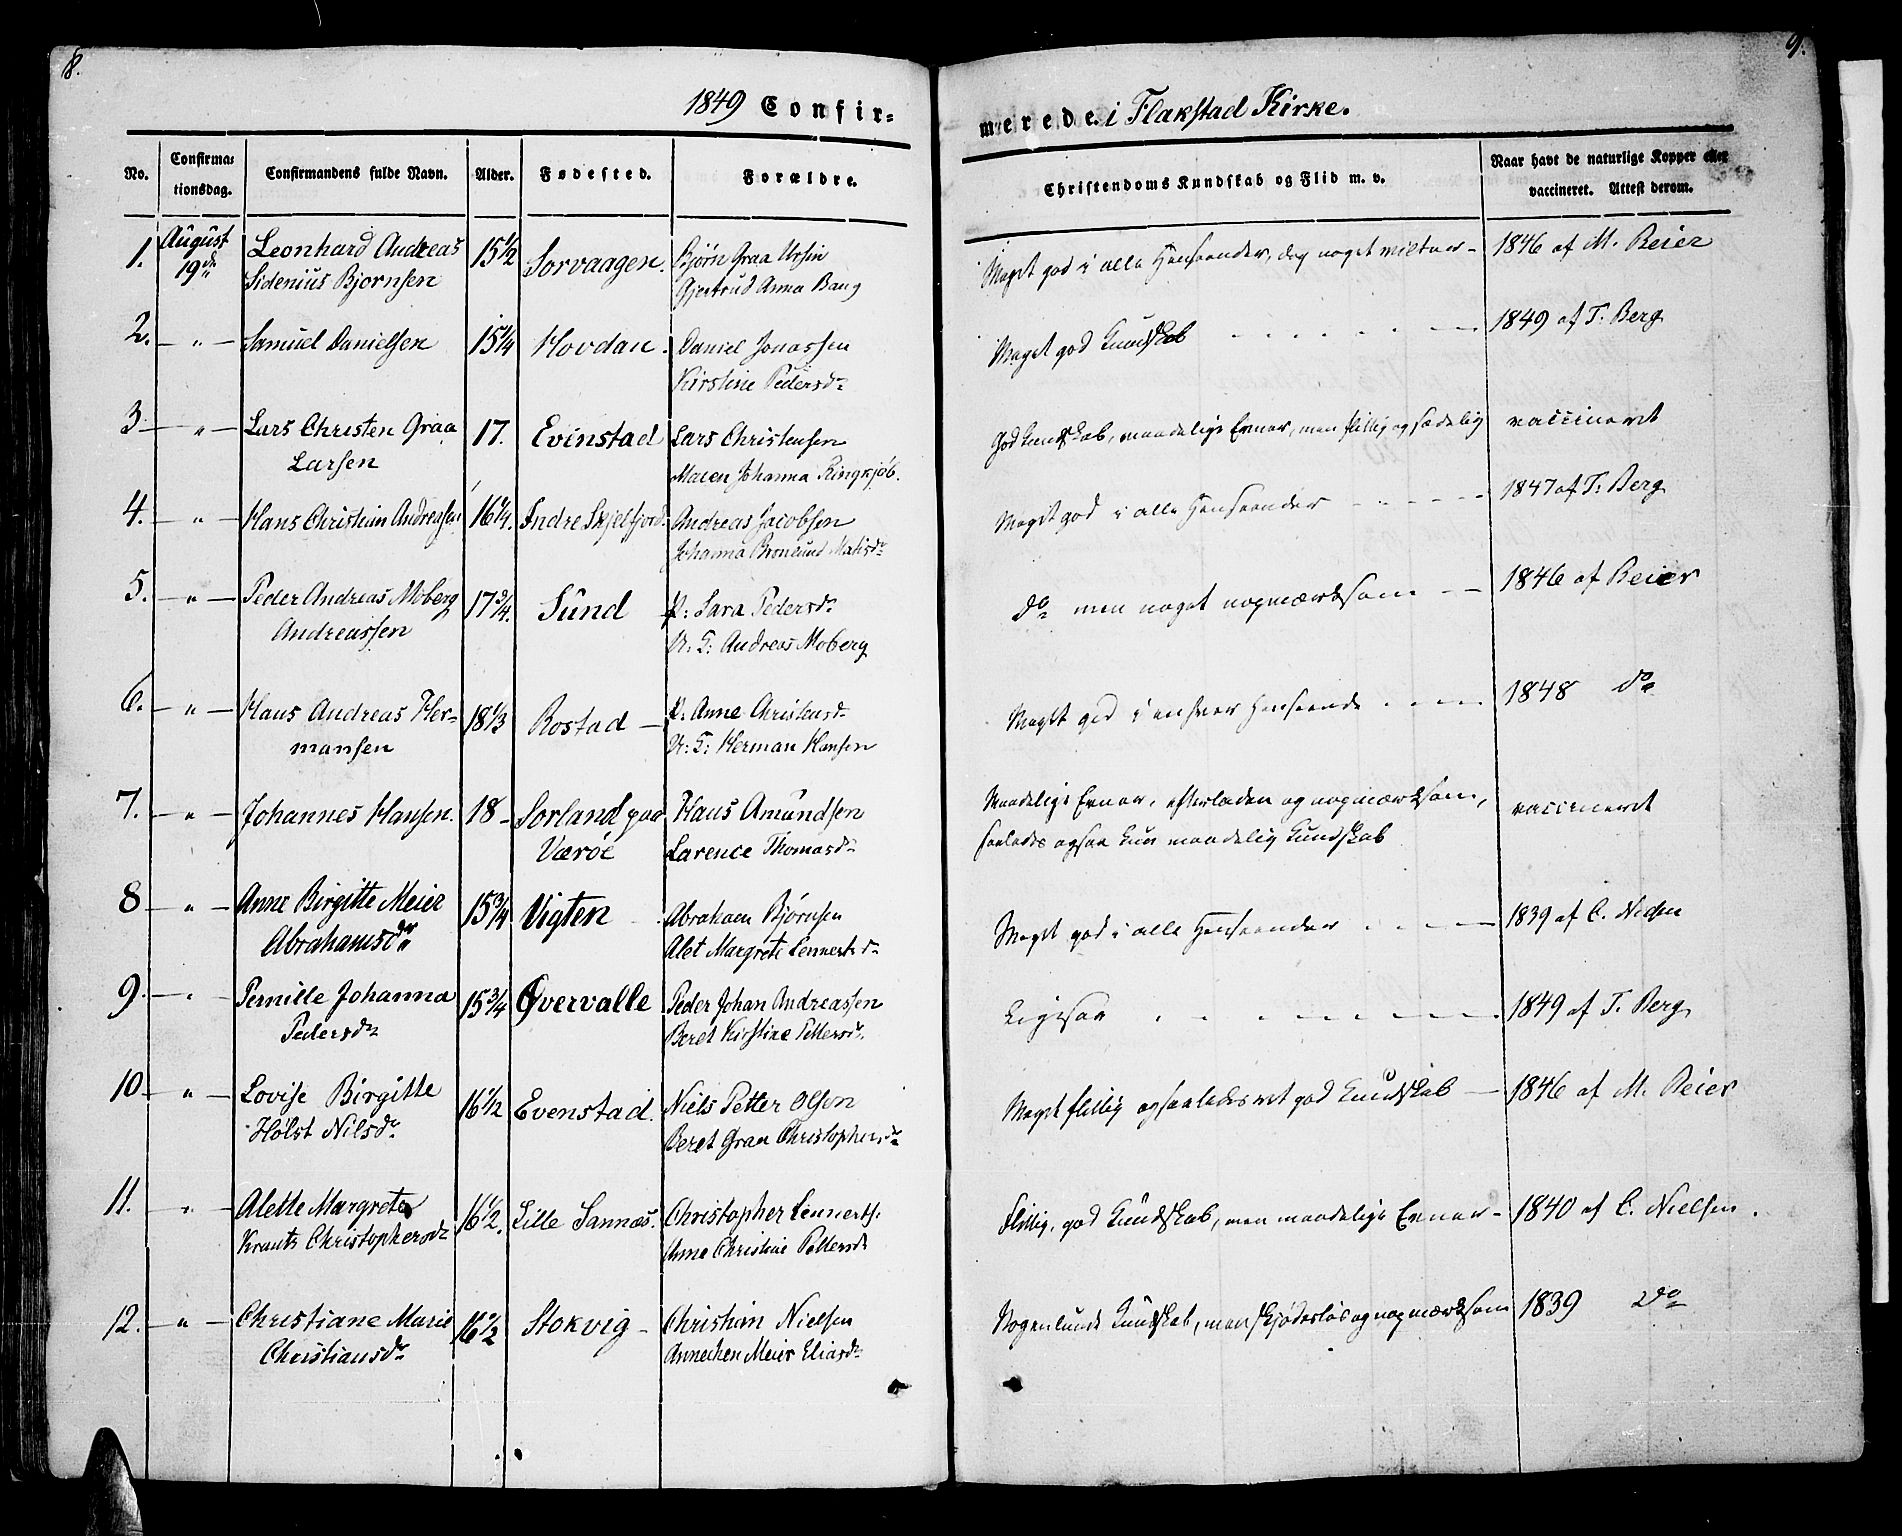 8.
9.
1849 Confir=
merede i Flakstad Kirke.
No.
Confirma=
tionsdag.
Confirmandens fulde Navn.
Alder.
Fødested.
Forældre.
Christendoms Kundskab og Flid m. v.
Naar havt de naturlige Kopper eller
vaccineret. Attest derom.
1. August 19de Leonhard Andreas 15 1/2 Sorvaagen. Bjørn Graa Ursin
Sidenius Bjornsen Gjertrud Anna Bang
Meget god i alle Henseender, dog noget 1846 af M. Reier
2. — " — Samuel Danielsen 15 1/4 Hovdan. Daniel Jonassen
Kirstine Pedersdr
Meget god Kundskab 1849 af T. Berg
3 — " — Lars Christen Graa 17. Evinstad Lars Christensen
Larsen Maren Johanna Ringkjøb.
God Kundskab, maadelige Evner, men flittig og sædelig vaccineret
4. — " — Hans Christian Andreasen 16 1/4. Indre Skjelfjord. Andreas Jacobsen
Johanna Bronlund Matisdr
Meget god i alle Henseender 1847 af T. Berg
5. — " — Peder Andreas Moberg 17 3/4. Sund P: Sara Pedersdr
Andreassen U. G: Andreas Moberg
do men noget uopmærksom 1846 af Reier
6. — " — Hans Andreas Her- 18 1/3 Rostad — P: Anne Christensd.
mansen U: G: Herman Hansen
Meget god i enhver Henseende 1848 do
7. — " — Johannes Hansen. 18 — Sorland paa Hans Amundsen
Værøe Larence Thomasdr
Maadelige Evner, efterladen og uopmærksom, vaccineret
saaledes ogsaa kun maadelig Kundskab
8 — " — Anne Birgitte Meier 15 3/4 Vigten Abraham Bjørnsen
Abrahamsdr Alet Margrete Lennertsdr
Meget god i alle Henseender 1839 af C.
9. — " — Pernille Johanna 15 3/4 Øvervalle Peder Johan Andreassen
Pedersdr Beret Kirstine Pettersdr.
Ligesaa 1849 af T. Berg
10 — " — Lovise Birgitte 16 1/2 Evenstad. Niels Petter Olsen
Holst Nilsdr. Beret Graa Christophersdr
Meget flittig og saaledes ret god Kundskab — 1846 af M. Reier
11. " Alette Margrete 16 1/2. Lille Sannes. Christopher Lennerts.
Krantz Christophersdr Anne Christine Pettersdr
Flittig, god Kundskab, men maadelige Evner — 1840 af C. Nielsen.
12. — " — Christiane Marie 16 1/2 Stokvig — Christian Nielsen
Christiansdr Annechen Meier Eliasdr
Nogenlunde Kundskab, men skjødesløs og uopmærksom 1839 do